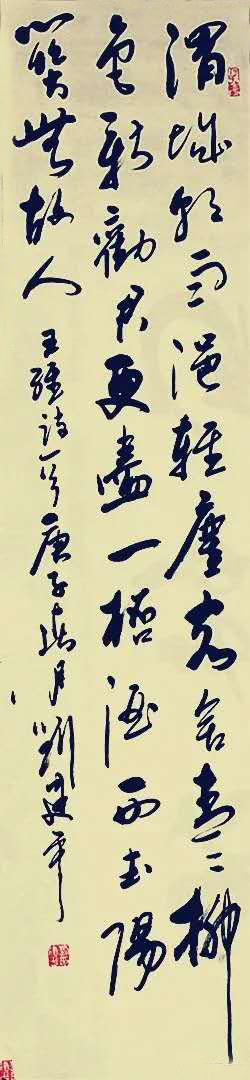 渭城朝雨浥輕塵客舍青青柳
色新勸君更盡一杯酒西出陽
關無故人 王維詩一首庚子春月劉建